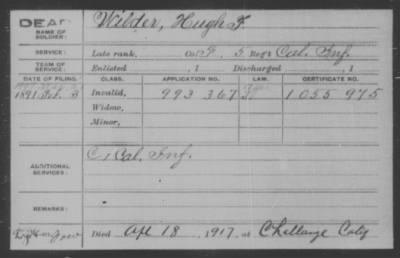 DEAD Wilder, Hugh F.
NAME OF SOLDIER:
SERVICE: Late rank, Co. F, 5 Reg't Cal. Inf.
TERM OF SERVICE: Enlisted , 1 Discharged , 1
DATE OF FILING. CLASS. APPLICATION NO. LAW. CERTIFICATE NO.
1891 Invalid, 993 367 1055 975
Widow,
Minor,
ADDITIONAL SERVICES: C, Cal. Inf.
REMARKS:
Died Apl 18, 1917, at Challange Calif